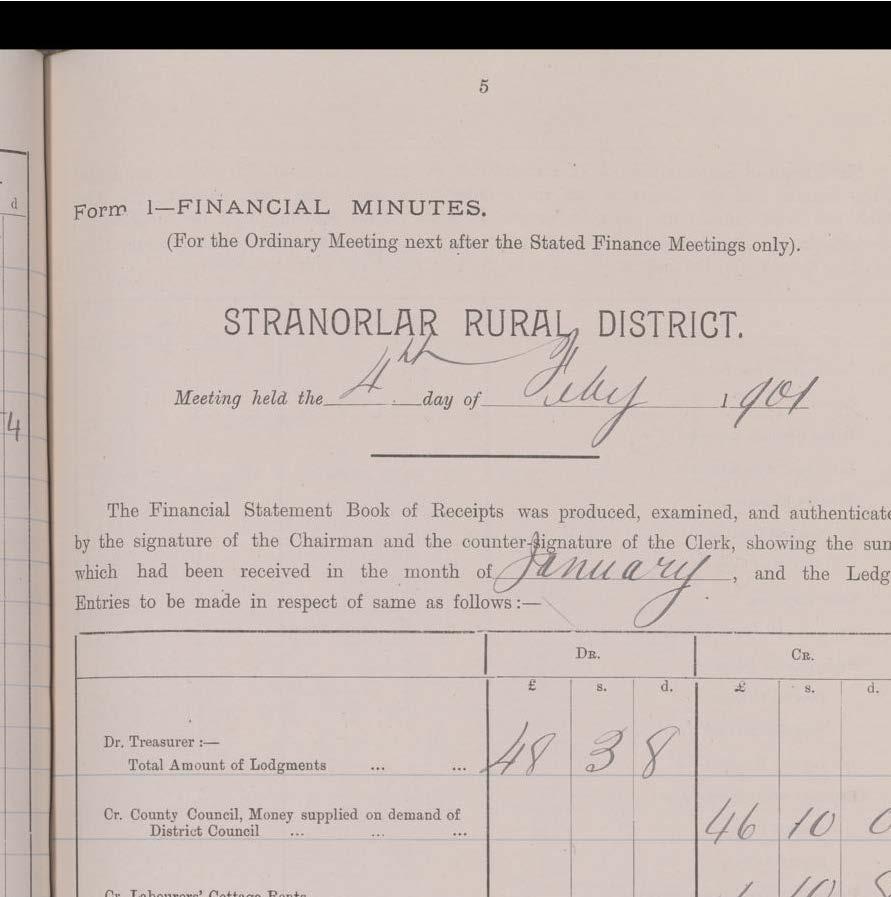 5
d
Form 1—FINANCIAL MINUTES.
(For the Ordinary Meeting next after the Stated Finance Meetings only).
STRANORLAR RURAL DISTRICT.
Meeting held the 4th day of Feby 1901
4
The Financial Statement Book of Receipts was produced, examined, and authenticate
by the signature of the Chairman and the counter-signature of the Clerk, showing the sum
which had been received in the month of January, and the Ledg
Entries to be made in respect of same as follows:—
DR. CR.
£ s. d. £ s. d.
Dr. Treasurer :—
Total Amount of Lodgments ... ... 48 3 8
Cr. County Council, Money supplied on demand of
District Council ... ... ... 46 10 0
Cr. Labourers' Cottage Rents 1 10 8